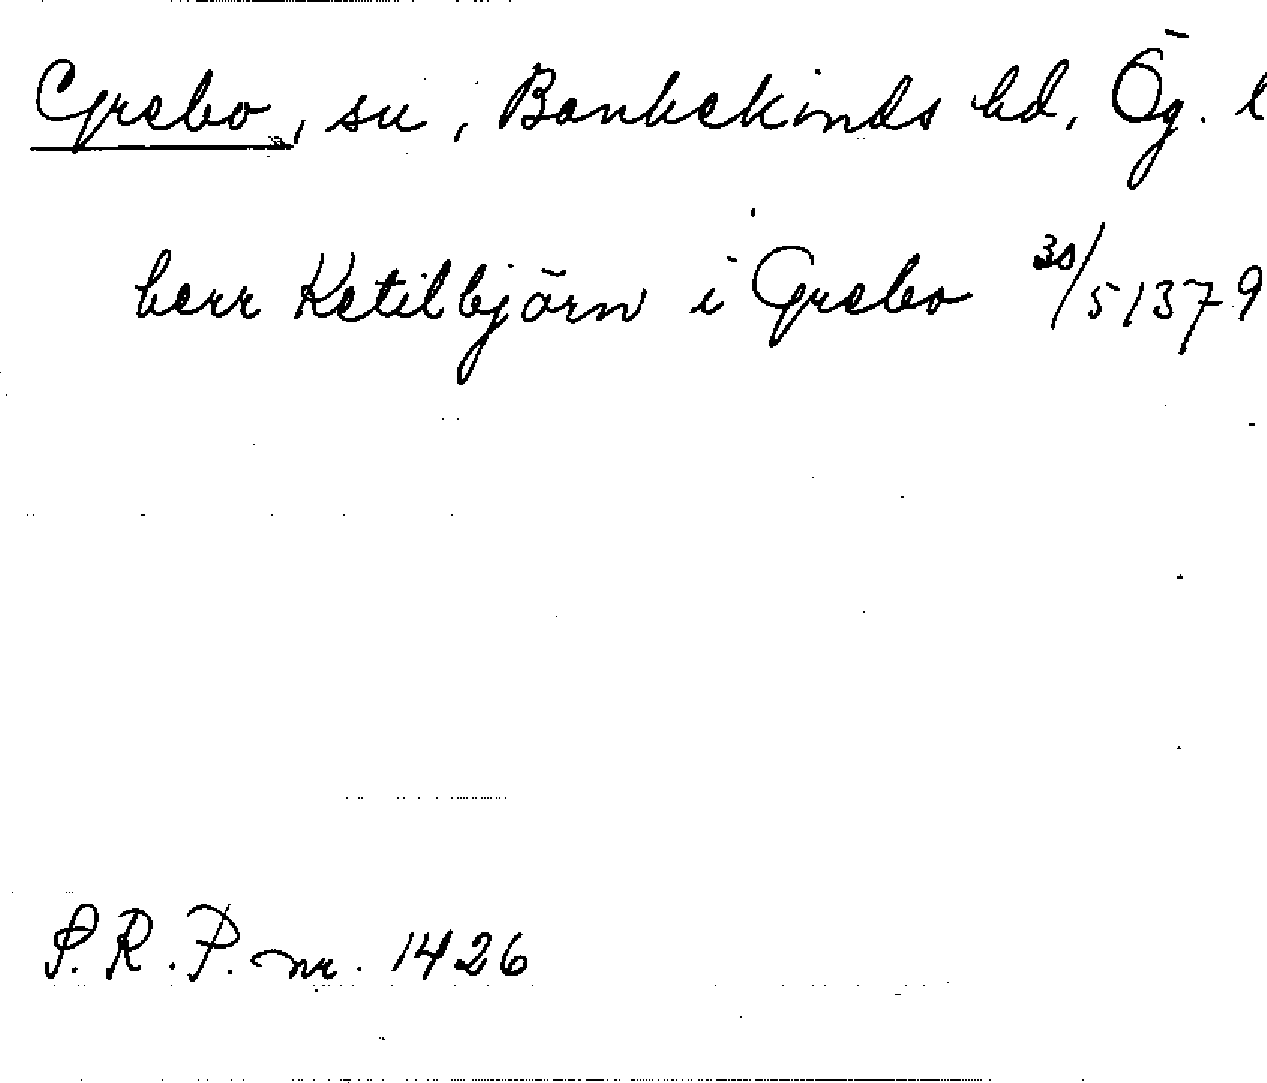 Grebo, sn, Bankekinds hd, Ög. l
herr Ketilbjörn i Grebo 30/5 1379
S.R.P. nr. 1426